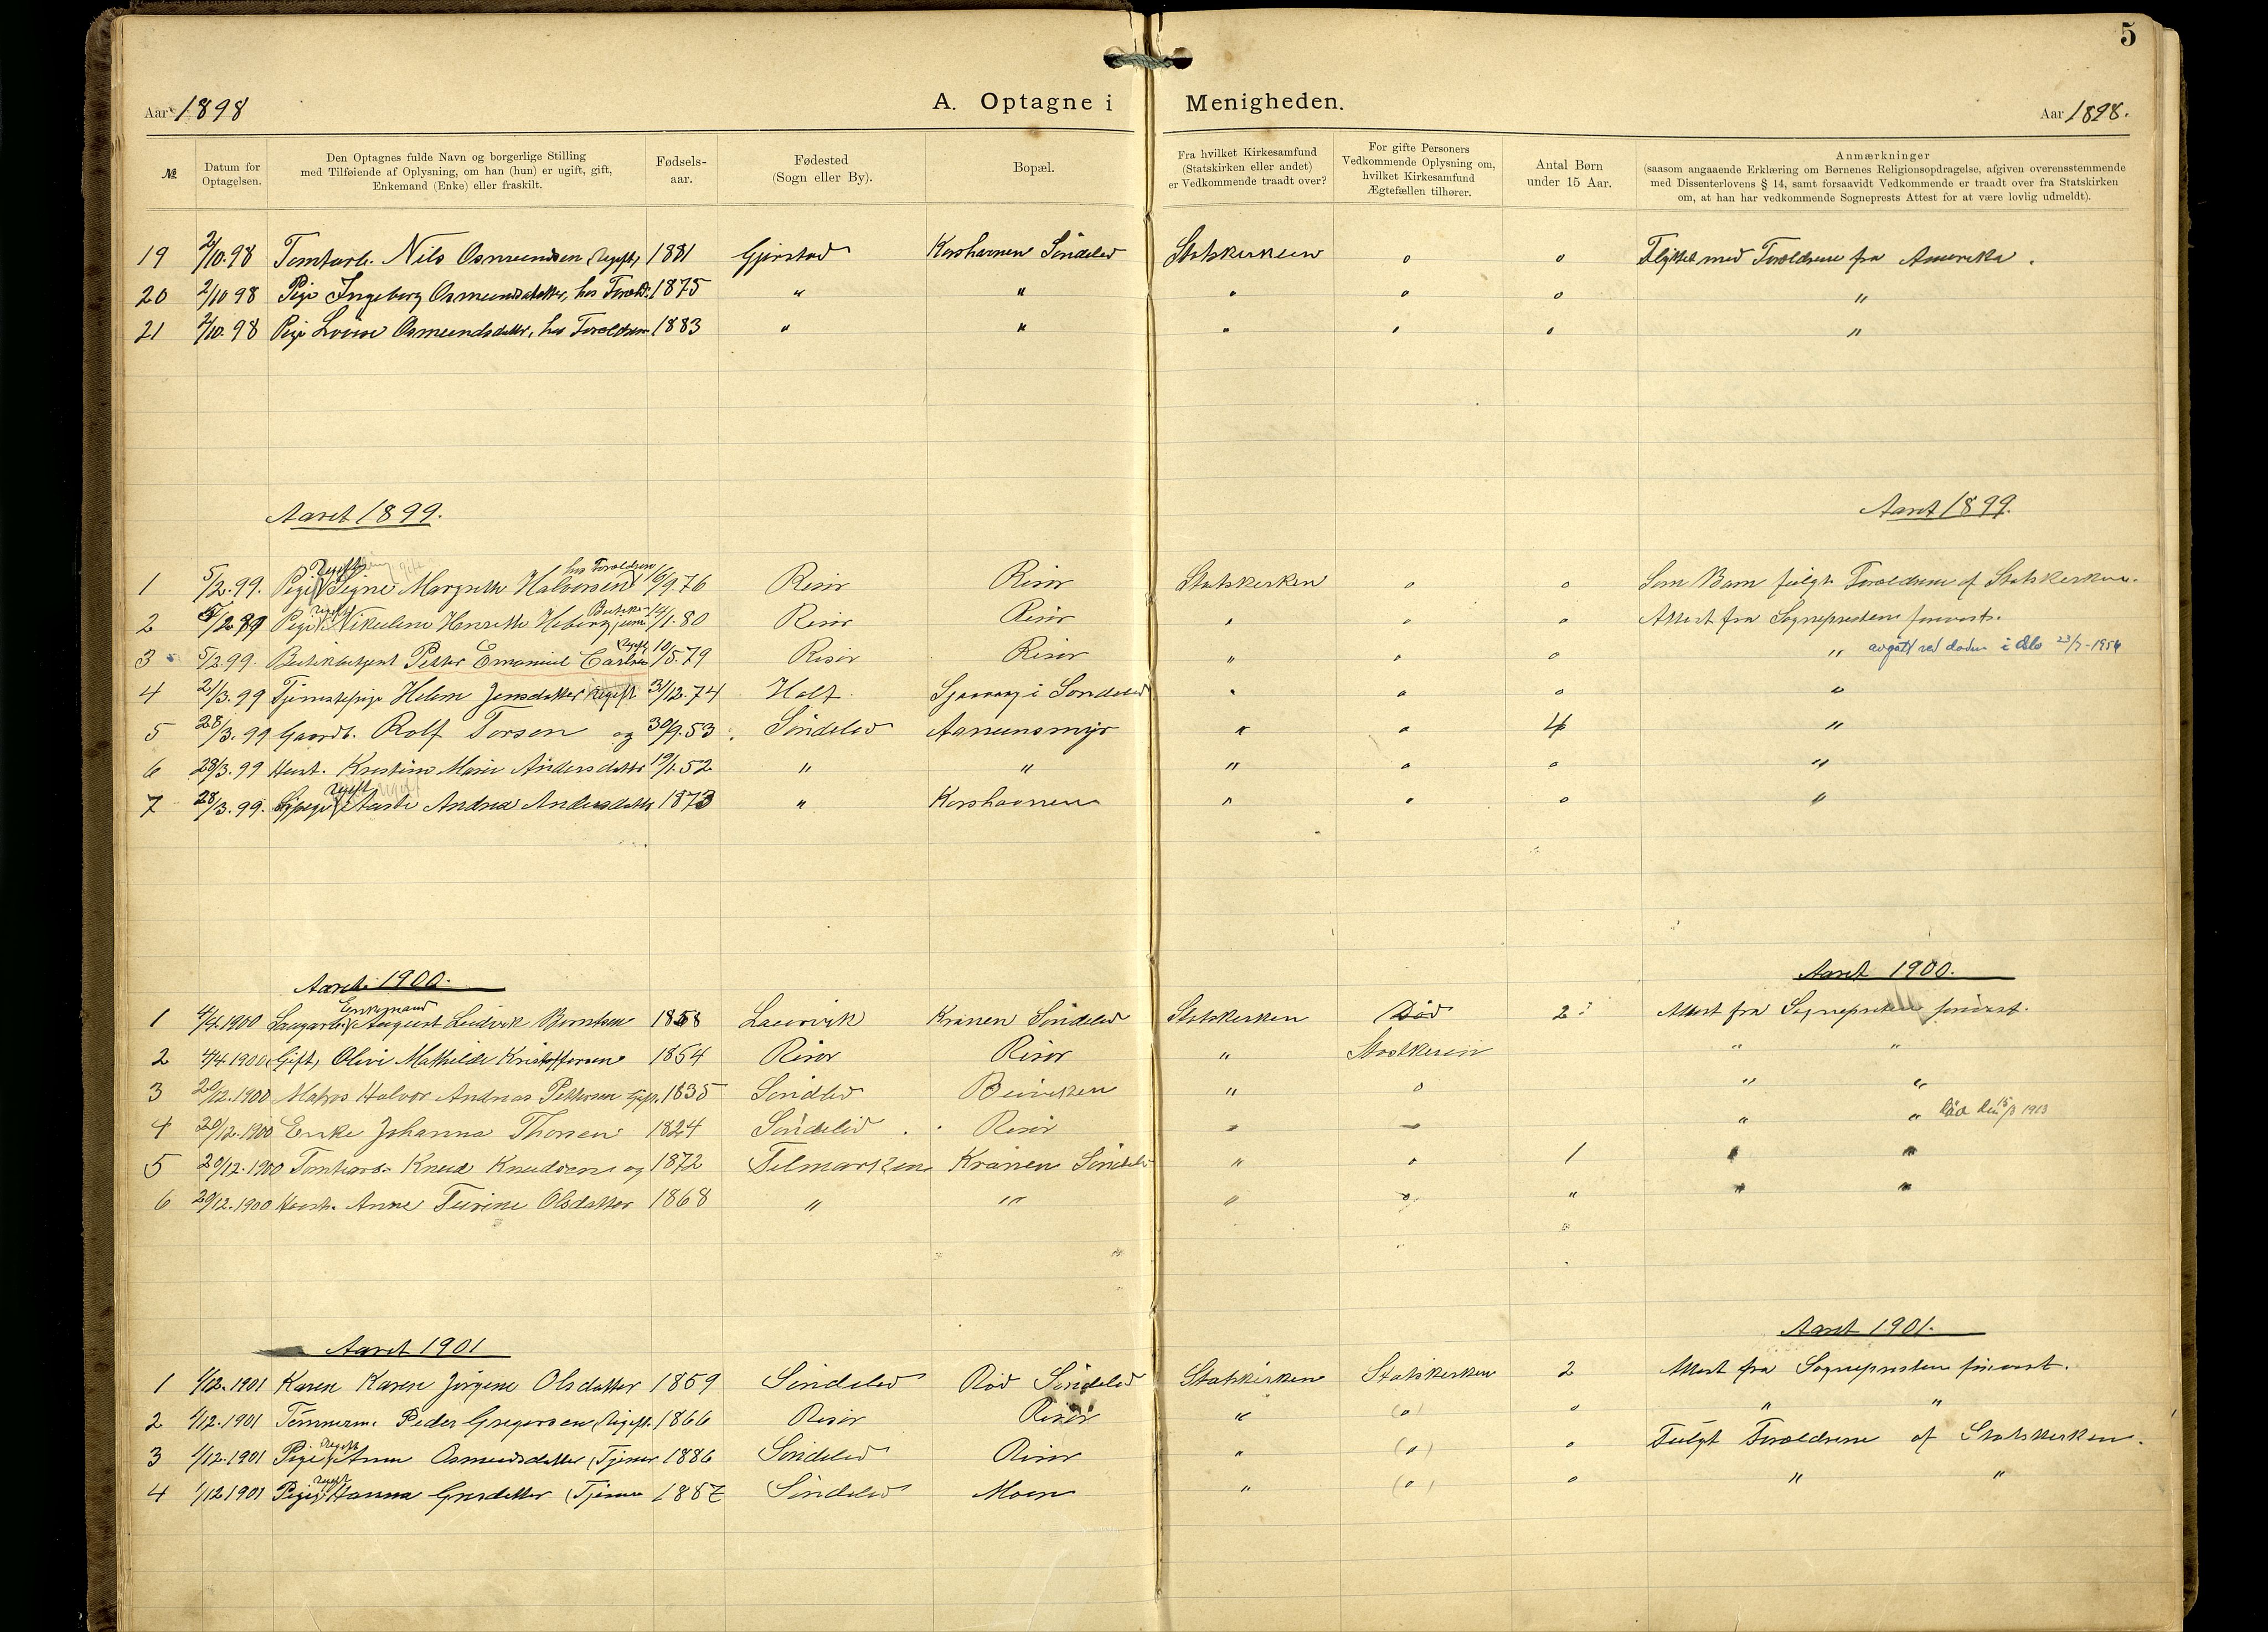 5
Aar 1898 A. Optagne i Menigheden. Aar 1898.
№ Datum for Optagelsen. Den Optagnes fulde Navn og borgerlige Stilling med Tilføiende af Oplysning, om han (hun) er ugift, gift, Enkemand (Enke) eller fraskilt. Fødsels-aar. Fødested (Sogn eller By). Bopæl. Fra hvilket Kirkesamfund (Statskirken eller andet) er Vedkommende traadt over? For gifte Personers Vedkommende Oplysning om, hvilket Kirkesamfund Ægtefællen tilhører. Antal Børn under 15 Aar. Anmærkninger (saasom angaaende Erklæring om Børnenes Religionsopdragelse, afgiven overensstemmende med Dissenterlovens § 14, samt forsaavidt Vedkommende er traadt over fra Statskirken om, at han har vedkommende Sogneprests Attest for at være lovlig udmeldt).
19 2/10.98 Tomtarb. Nils Osmundsen, Ugift, 1881 Gjerstad Korshavnen Söndeled Statskirken o o Flyttet med Foreldrene fra Amerika.
20 2/10 98 Pige Ingeborg Osmundsdatter, hos Foreld. 1875 " " " o o "
21 2/10.98 Pige Lovise Osmundsdatter, hos Foreldrene 1883 " " " " o "
Aaret 1899. Aaret 1899.
1 5/2.99. Pige Ugift Signe Margrethe Halvorsen hos Foreldren 16/9.76 Risör Risör Statskirken o o Som Barn fulgt Foreldrene af Statskirken.
2 5/2 89 Pige Ugift Nikuline Henrette Heberg 14/1.80 Risör Risör " o o Attest fra Sognepresten forevist.
3 5/2 99. Butikbetjent Petter Emanuel Carlsen Ugift 10/5.79 Risör Risör " o o " avgått ved döden i Oslo 23/7-1954
4 21/3.99 Tjenestepige Helene Jensdatter Ugift 31/12.74 Holt Söndeled " o o "
5 28/3.99 Gaardb. Rolf Torsen og 30/9.53. Söndeled Aanunsmyr " o 4 "
6 28/3.99 Hust. Kristine Marie Andersdatter 19/1.52 " " " o o "
7 28/3.99. Ugift Aaste Andrea Andersdatter 1873 " Korshavnen " o o "
Aaret 1900. Aaret 1900.
1 4/4.1900 Sagarb. Enkemand August Ludvik Berntsen 1858 Laurvik Kranen Söndeled Statskirken Död 2 Attest fra Sognepresten forevist.
2 4/4.1900 Gift, Olivi Mathilde Kristoffersen 1854 Risör Risör " " "
3 20/12.1900 Matros Halvor Andreas Pettersen Gift. 1835 Söndeled " o " "
4 20/12.1900 Enke Johanna Thorsen 1824 Söndeled Risör " " " Död den 15/3 1913
5 20/12.1900 Tomtearb. Knud Knudsen og 1872 Telmarken Kranen Söndeled " o 1 " "
6 20/12.1900 Hust. Anne Turine Olsdatter 1868 " " " o " " "
Aaret 1901 Aaret 1901.
1 1/12.1901 Karen Karen Jörgine Olsdatter 1859 Söndeled Röd Söndeled Statskirken Statskirken 2 Attest fra Sognepresten forevist.
2 1/12.1901 Tömmerm. Peder Gregersen, Ugift. 1866 Risör Risör " (o) o " "
3 1/12.1901 Pige Ugift Anne Osmundsdatter, Tjener 1886 Söndeled Risör " (o) o Fulgt Foreldrene af Statskirken.
4 1/12 1901 Pige Ugift Hanna (Tjener 1887 Söndeled Moen " (o) o " "